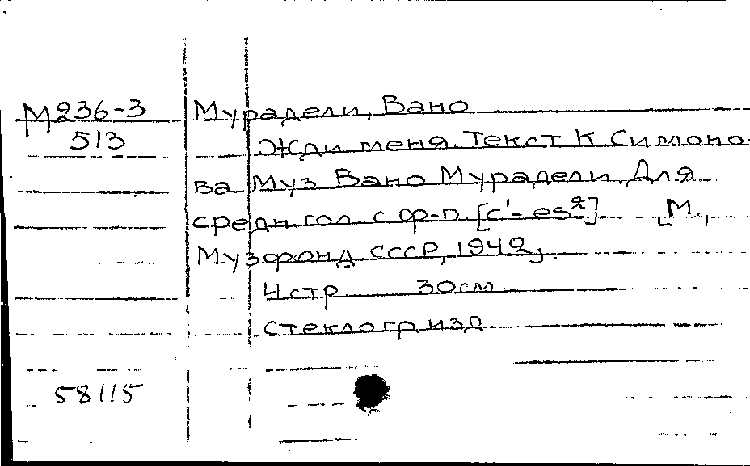 М236-3
513
Мурадели, Вано
Жди меня. Текст К Симоно-
ва Муз Вано Мурадели Для
средн гол с ф-п. [c'-es²] [М.,
Музфонд СССР, 1942]
4 стр 30см
стеклогр изд
58115